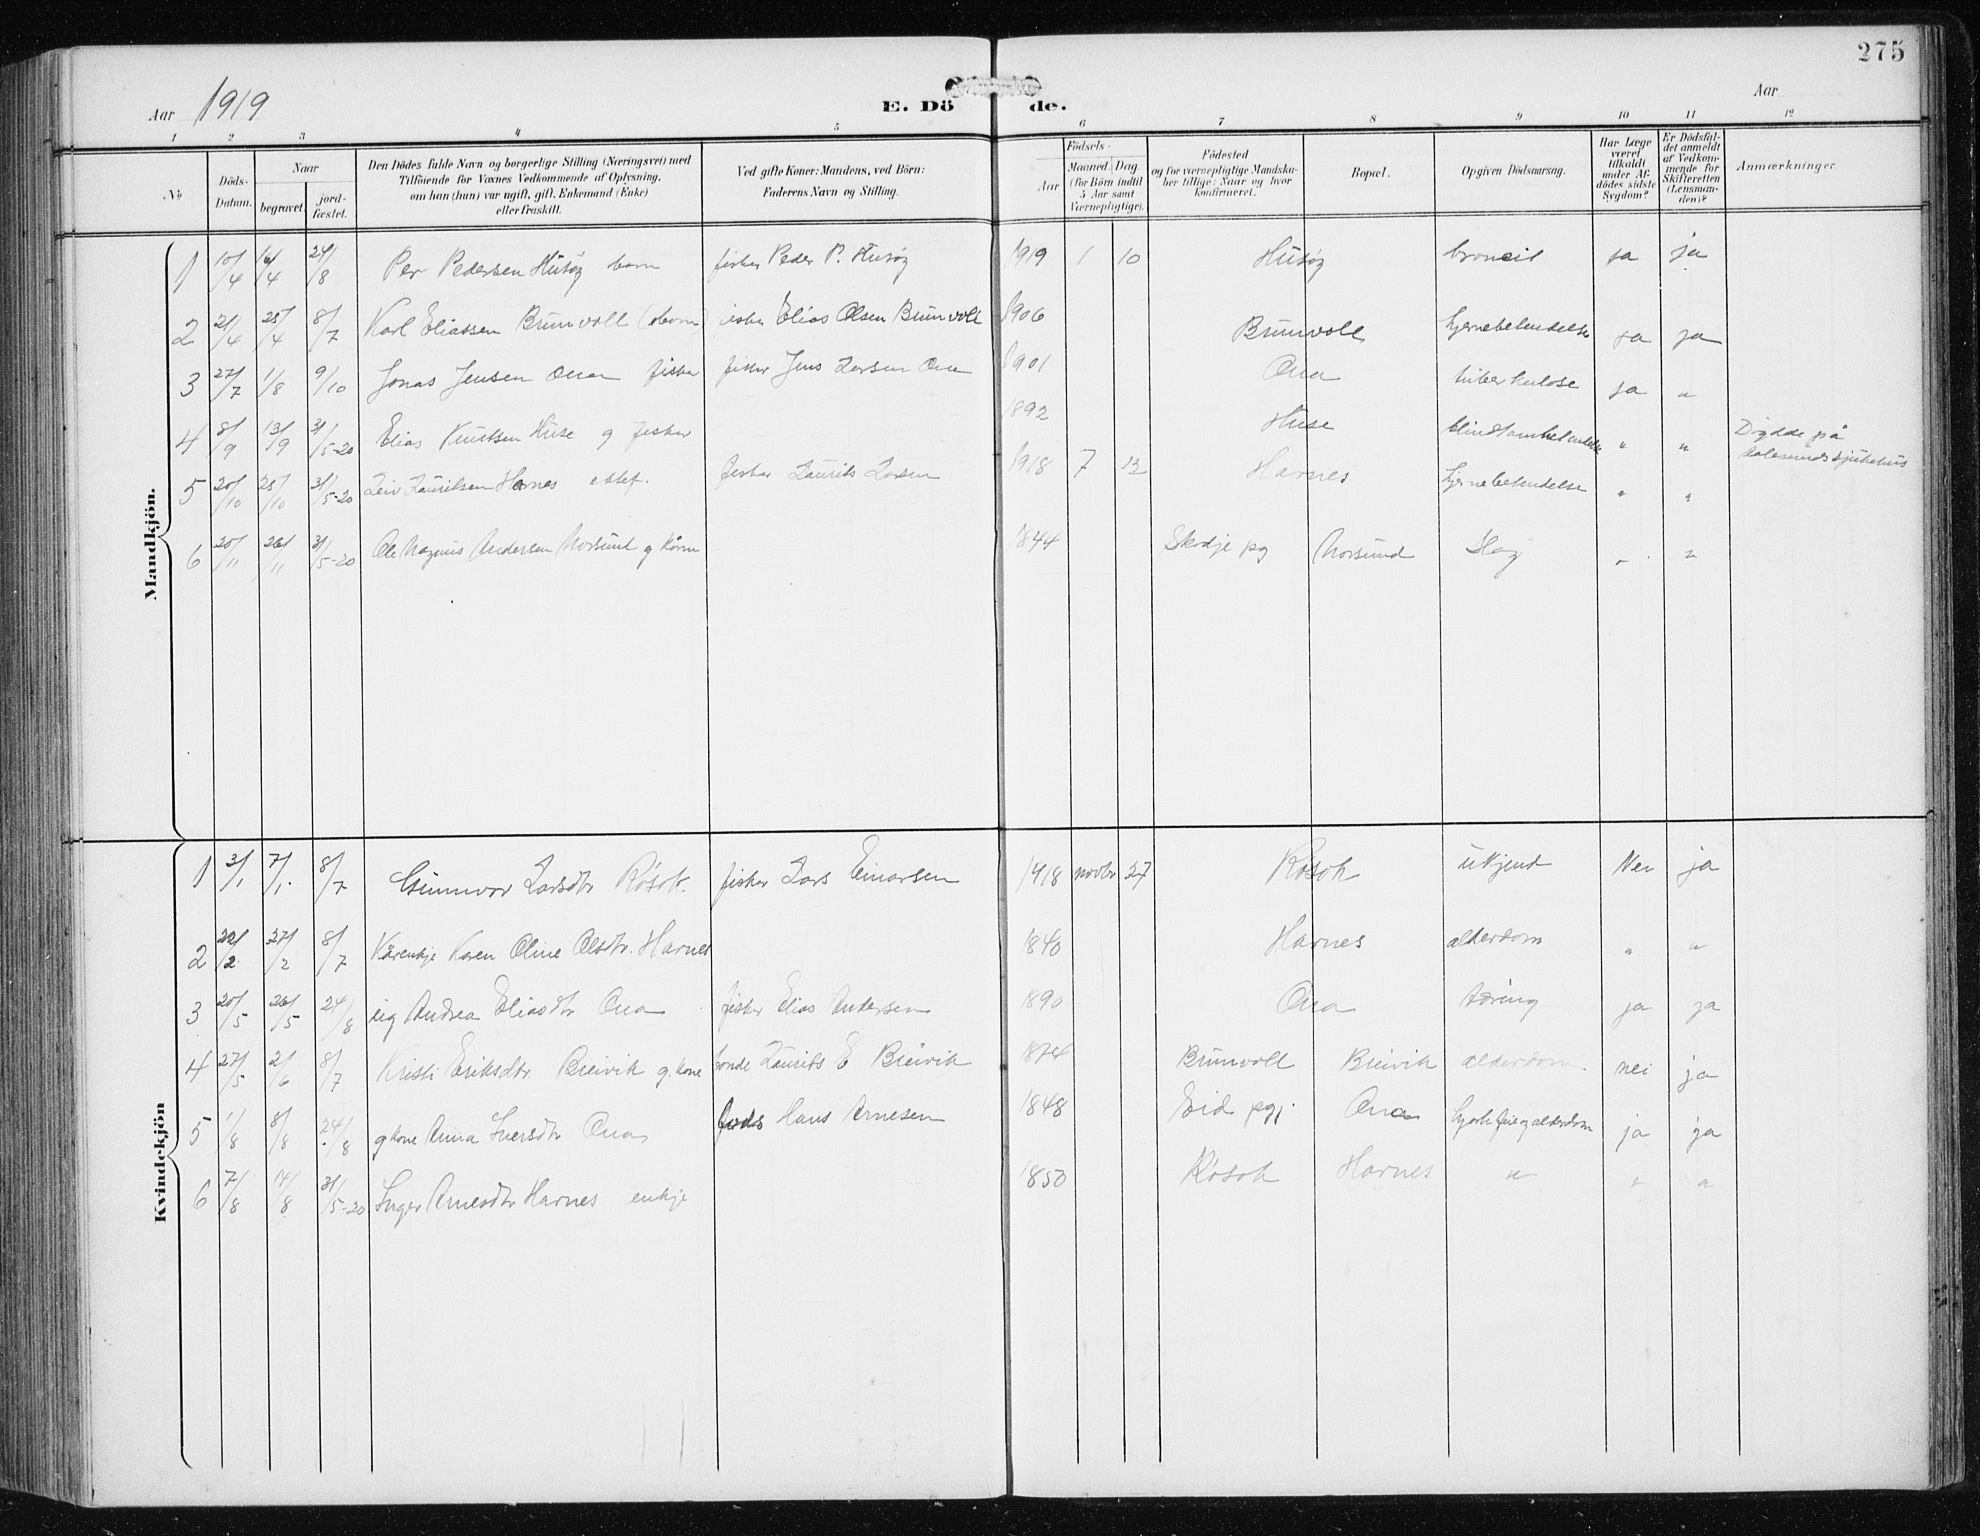 275
Aar 1919
E. Dö de.
Aar
1 2 3 4 5 6 7 8 9 10 11 12
No.
Döds-Datum.
Naar
begravet.
jord-fæstet.
Den Dödes fulde Navn og borgerlige Stilling (Næringsvei) med
Tilföiende for Voxnes Vedkommende af Oplysning,
om han (hun) var ugift, gift, Enkemand (Enke)
eller fraskilt.
Ved gifte Koner: Mandens, ved Börn:
Faderens Navn og Stilling.
Födsels-
Aar
Maaned. Dag.
(for Börn indtil
5 Aar samt
Værnepligtige).
Födested
og for værnepligtige Mandska-
ber tillige: Naar og hvor
konfirmeret.
Bopæl.
Opgiven Dödsaarsag.
Har Læge
været
tilkaldt
under Af-
dödes sidste
Sygdom?
Er Dödsfal-
det anmeldt
af Vedkom-
mende for
Skifteretten
(Lensman-
den)?
Anmærkninger.
Mandkjön.
1 10/4 16/4 24/8 Per Pedersen Husøy barn fisker Peder P. Husøy 1919 1 10 Husøy broncit ja ja
2 21/4 28/4 8/7 Karl Eliassen Brunvoll (barn) fisker Elias Olsen Brunvoll 1906 Brunvoll hjernebetendelse ja ja
3 27/7 1/8 9/10 Jonas Jensen Ona fisker fisker Jens Larsen Ona 1901 Ona tuberkulose ja "
4 8/9 13/9 31/5-20 Elias Knutsen Huse g fisker 1892 Huse blindtarmbetendelse " " Døydde på Aalesunds sjukehus
5 20/10 25/10 31/5-20 Leiv Lauritsen Harnes ektef. fisker Laurits Larsen 1918 7 12 Harnes hjernebetendelse " "
6 20/11 26/11 31/5-20 Ole Magnus Andersen Morsund g kårm 1844 Skodje pg Morsund Slag " "
Kvindekjön
1 3/1 7/1 8/7 Gunnvor Larsdtr Røsok. fisker Lars Einarsen 1918 novbr 27 Røsok ukjend Nei ja
2 22/2 27/2 8/7 Kårenkje Karen Oline Olsdtr. Harnes 1840 Harnes alderdom " "
3 20/5 26/5 24/8 ug Andrea Eliasdtr Ona fisker Elias Andersen 1890 Ona tæring ja ja
4 27/5 2/6 8/7 Kristi Eriksdtr Breivik g. kone bonde Laurits E Breivik 1874 Brunvoll Breivik alderdom. nei ja
5 1/8 8/8 24/8 g kone Anna Iversdtr Ona Hans Arnesen 1848 Eid pgj. Ona hjertefeil og alderdom ja ja
6 7/8 14/8 31/5-20 Inger Arnesdtr Harnes enkje 1850 Røsok Harnes " " "